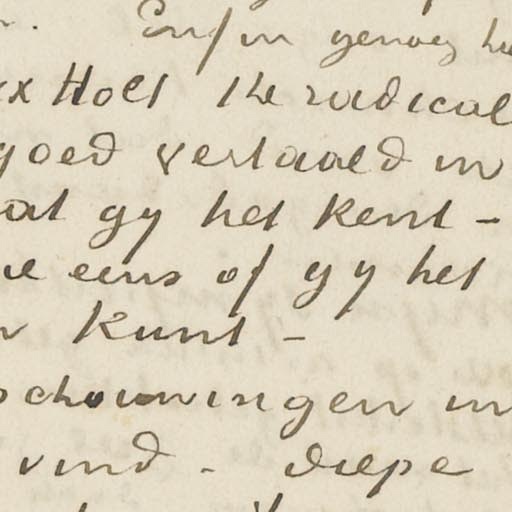 Enfin genoeg
Holt the radical
goed vertaald in
at gy het kent -
eens of gy het
kunt -
schouwingen in
vind - diepe